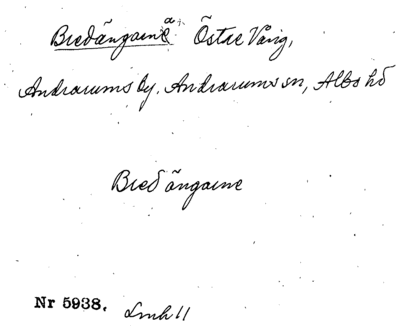 Bredängarne å Östre Vång,
Andrarums by, Andrarums sn, Albo hd
Bredängarne
Nr 5938. Lmh 11